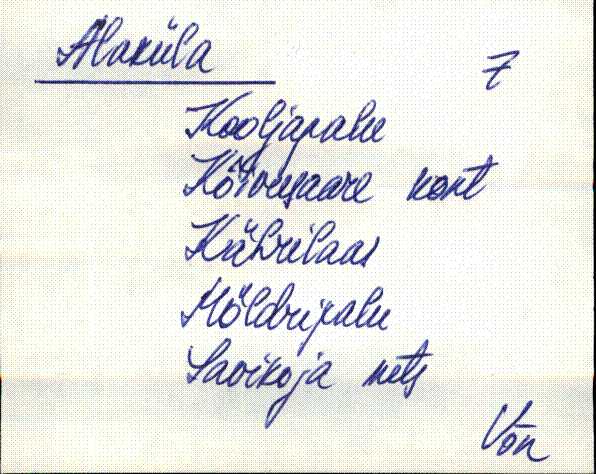 Alaküla 7
Kooljapalu
Kõivusaare kont
Kährilaas
Möldripalu
Savikoja mets
Võn